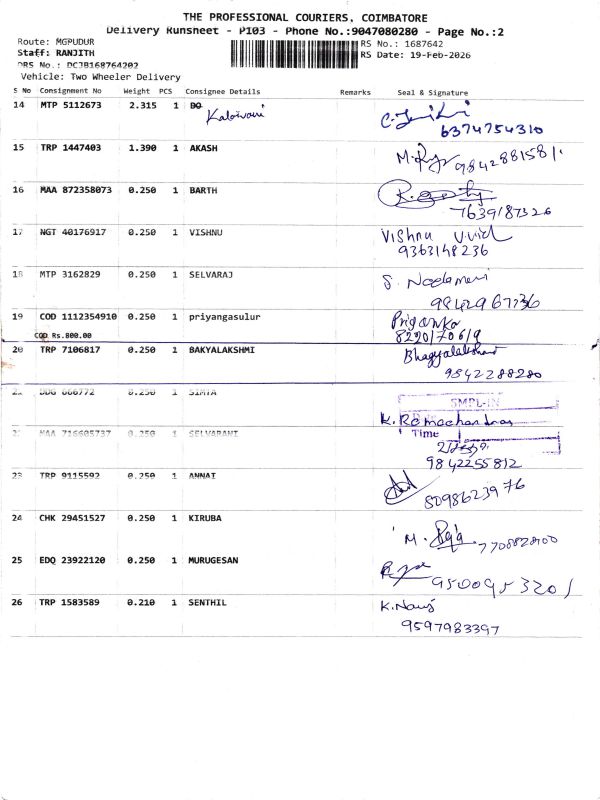 THE PROFESSIONAL COURIERS, COIMBATORE
Delivery Runsheet - P103 - Phone No.:9047080280 - Page No.:2
Route: MGPUDUR
RS No.: 1687642
Staff: RANJITH
RS Date: 19-Feb-2026
DRS No.: DCJB168764202
Vehicle: Two Wheeler Delivery
S No Consignment No Weight PCS Consignee Details Remarks Seal & Signature
14 MTP 5112673 2.315 1 DO
6374754310
15 TRP 1447403 1.390 1 AKASH
9842881581
16 MAA 872358073 0.250 1 BARTH
7639187326
17 NGT 40176917 0.250 1 VISHNU Vishnu
9363148236
18 MTP 3162829 0.250 1 SELVARAJ
9842967736
19 COD 1112354910 0.250 1 priyangasulur Priyanka
COD Rs.800.00
20 TRP 7106817 0.250 1 BAKYALAKSHMI
9842288280
666772 0.250 1
SMPL-IN
K. Ramachandran
MAA 716605737 0.250 1 SELVARANI Time
9842255812
23 TRP 9115592 0.250 1 ANNAI
8098623976
24 CHK 29451527 0.250 1 KIRUBA
M. Raja 7708828900
25 EDQ 23922120 0.250 1 MURUGESAN
9500953201
26 TRP 1583589 0.210 1 SENTHIL
9597983397